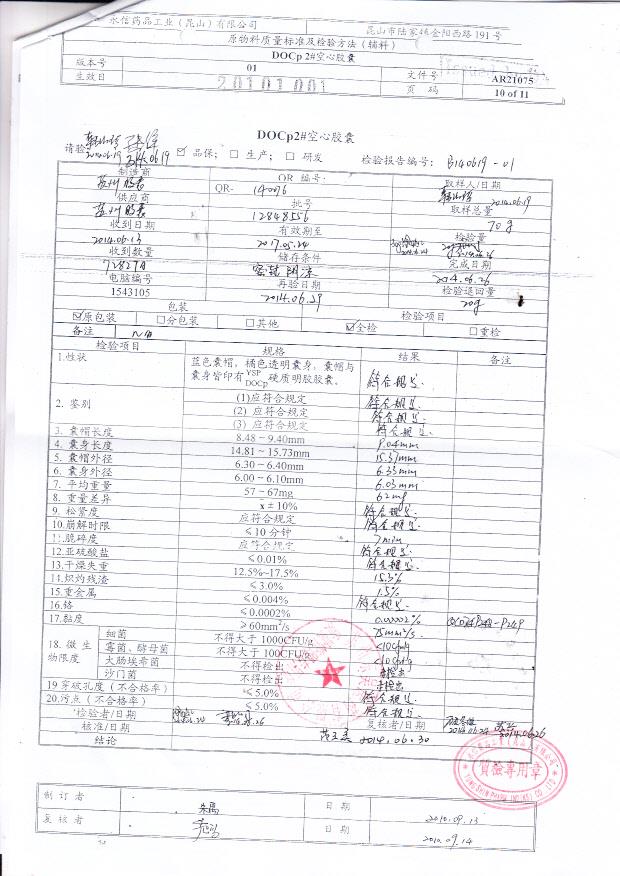 永信药品工业（昆山）有限公司 昆山市陆家镇金阳西路191号
原物料质量标准及检验方法（辅料）
DOCp 2#空心胶囊
版本号 01 文件号 AR21075
生效日 20101001 页 码 10 of 11
DOCp2#空心胶囊
请验 2014.06.19 ☑ 品保；☐ 生产；☐ 研发 检验报告编号：B140619-01
制造商 QR 编号： 取样人/日期
苏州胶囊 QR- 14076 2014.06.19
供应商 批号 取样总量
苏州胶囊 12848556 70g
收到日期 有效期至 检验量
2014.06.13 2017.05.24
收到数量 储存条件 完成日期
密封 阴凉 2014.06.26
电脑编号 再验日期 检验退回量
1543105 2014.06.29 20g
包装 检验项目
☑原包装 ☐分包装 ☐其他 ☑全检 ☐重检
备注 N/A
检验项目 规格 结果 备注
1.性状 蓝色囊帽，橘色透明囊身，囊帽与
囊身皆印有 YSP DOCp 硬质明胶胶囊。 符合规定.
2. 鉴别 (1)应符合规定 符合规定.
(2) 应符合规定 符合规定.
(3) 应符合规定 符合规定.
3. 囊帽长度 8.48～9.40mm 9.04mm
4. 囊身长度 14.81～15.73mm 15.37mm
5. 囊帽外径 6.30～6.40mm 6.33mm
6. 囊身外径 6.00～6.10mm 6.03mm
7. 平均重量 57～67mg 62mg
8. 重量差异 x̄±10% 符合规定.
9. 松紧度 应符合规定 符合规定.
10.崩解时限 ≤10 分钟 7min
11.脆碎度 应符合规定 符合规定.
12.亚硫酸盐 ≤0.01% 符合规定.
13.干燥失重 12.5%~17.5% 15.3%
14.炽灼残渣 ≤3.0% 1.5%
15.重金属 ≤0.004% 符合规定.
16.铬 ≤0.0002% 0.00002%
17.黏度 ≥60mm²/s 75mm²/s
18. 微生物限度 细菌 不得大于 1000CFU/g <10cfu/g
霉菌、酵母菌 不得大于 100CFU/g <10cfu/g
大肠埃希菌 不得检出 未检出
沙门菌 不得检出 未检出
19 穿破孔度（不合格率） ≤5.0% 符合规定
20.污点（不合格率） ≤5.0% 符合规定.
检验者/日期 复核者/日期 2014.06.26
核准/日期 2014.06.30
结论
质检专用章
制 订 者 日 期 2010.09.13
复 核 者 日 期 2010.09.14